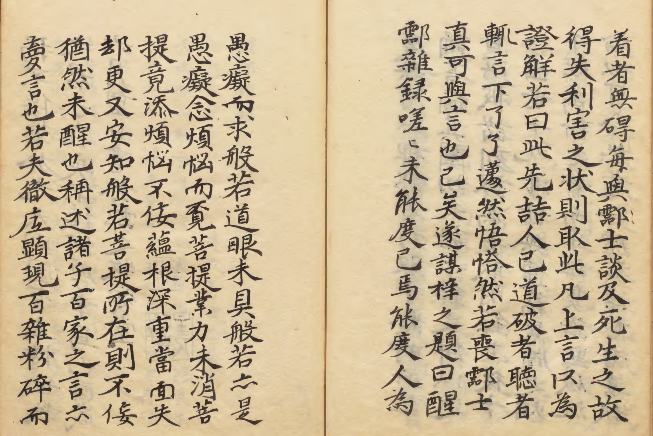 看者無碍每與酆士談及死生之故
得失利害之状則取此凡上言以為
證解若曰此先喆人已道破者聽者
輒言下了了邈然悟恰然若喪酆士
真可與言也已矣遂謀梓之題曰醒
酆雜録嗟〻未能度已焉能度人為
愚癡而求般若道眼未具般若亦是
愚癡念煩惱而覓菩提業力未消菩
提竟添煩惱不佞蘊根深重當面失
却更又安知般若菩提所在則不佞
猶然未醒也稱述諸子百家之言亦
夢言也若夫徹底顯現百雜粉碎而